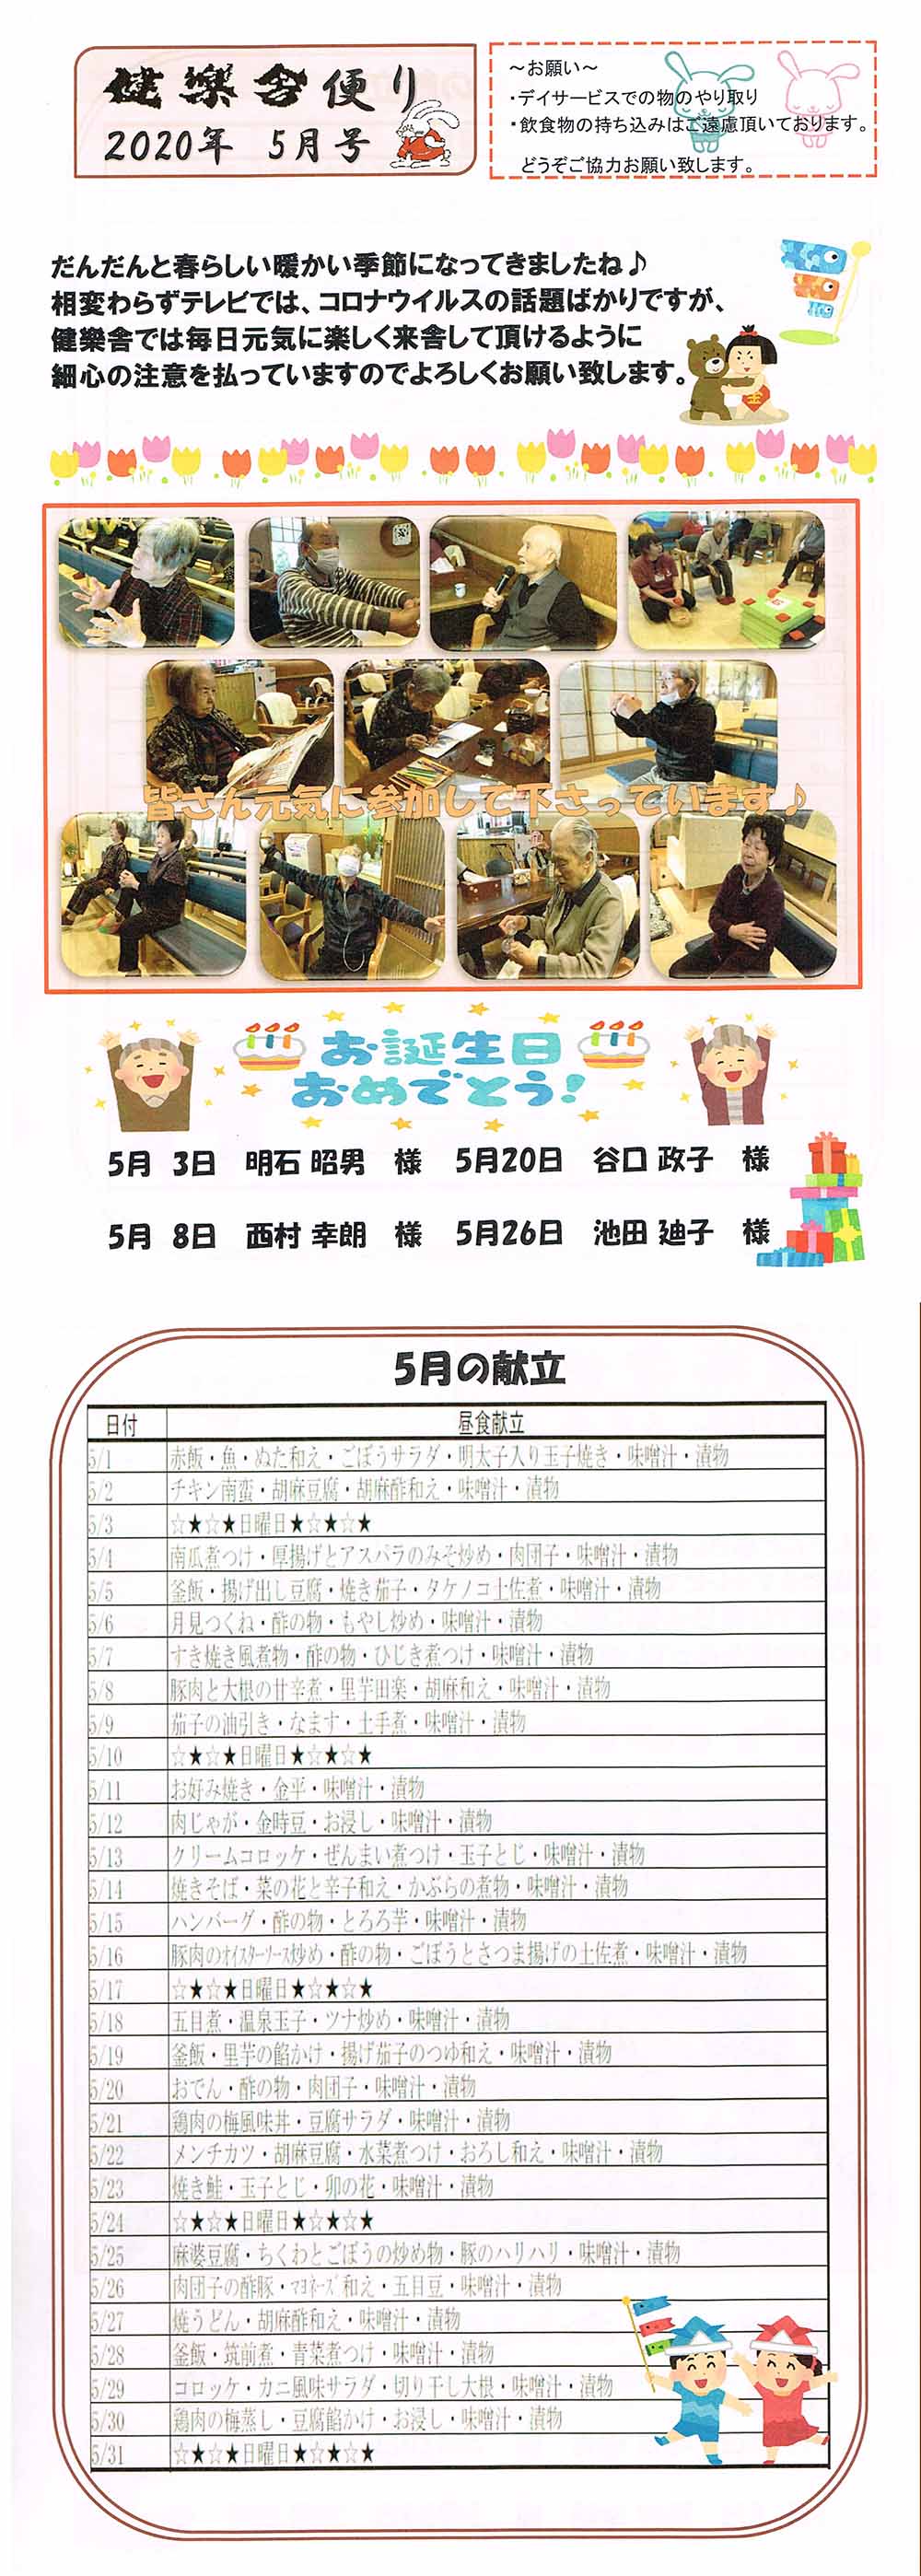 健樂舎便り
2020年 5月号
～お願い～
・デイサービスでの物のやり取り
・飲食物の持ち込みはご遠慮頂いております。
どうぞご協力お願い致します。
だんだんと春らしい暖かい季節になってきましたね♪
相変わらずテレビでは、コロナウイルスの話題ばかりですが、
健樂舎では毎日元気に楽しく来舎して頂けるように
細心の注意を払っていますのでよろしくお願い致します。
金
皆さん元気に参加して下さっています♪
お誕生日
おめでとう！
5月 3日 明石 昭男 様 5月20日 谷口 政子 様
5月 8日 西村 幸朗 様 5月26日 池田 廸子 様
5月の献立
日付 昼食献立
5/1 赤飯・魚・ぬた和え・ごぼうサラダ・明太子入り玉子焼き・味噌汁・漬物
5/2 チキン南蛮・胡麻豆腐・胡麻酢和え・味噌汁・漬物
5/3 ☆★☆★日曜日★☆★☆★
5/4 南瓜煮つけ・厚揚げとアスパラのみそ炒め・肉団子・味噌汁・漬物
5/5 釜飯・揚げ出し豆腐・焼き茄子・タケノコ土佐煮・味噌汁・漬物
5/6 月見つくね・酢の物・もやし炒め・味噌汁・漬物
5/7 すき焼き風煮物・酢の物・ひじき煮つけ・味噌汁・漬物
5/8 豚肉と大根の甘辛煮・里芋田楽・胡麻和え・味噌汁・漬物
5/9 茄子の油引き・なます・土手煮・味噌汁・漬物
5/10 ☆★☆★日曜日★☆★☆★
5/11 お好み焼き・金平・味噌汁・漬物
5/12 肉じゃが・金時豆・お浸し・味噌汁・漬物
5/13 クリームコロッケ・ぜんまい煮つけ・玉子とじ・味噌汁・漬物
5/14 焼きそば・菜の花と辛子和え・かぶらの煮物・味噌汁・漬物
5/15 ハンバーグ・酢の物・とろろ芋・味噌汁・漬物
5/16 豚肉のｵｲｽﾀｰｿｰｽ炒め・酢の物・ごぼうとさつま揚げの土佐煮・味噌汁・漬物
5/17 ☆★☆★日曜日★☆★☆★
5/18 五目煮・温泉玉子・ツナ炒め・味噌汁・漬物
5/19 釜飯・里芋の餡かけ・揚げ茄子のつゆ和え・味噌汁・漬物
5/20 おでん・酢の物・肉団子・味噌汁・漬物
5/21 鶏肉の梅風味丼・豆腐サラダ・味噌汁・漬物
5/22 メンチカツ・胡麻豆腐・水菜煮つけ・おろし和え・味噌汁・漬物
5/23 焼き鮭・玉子とじ・卯の花・味噌汁・漬物
5/24 ☆★☆★日曜日★☆★☆★
5/25 麻婆豆腐・ちくわとごぼうの炒め物・豚のハリハリ・味噌汁・漬物
5/26 肉団子の酢豚・ﾏﾖﾈｰｽﾞ和え・五目豆・味噌汁・漬物
5/27 焼うどん・胡麻酢和え・味噌汁・漬物
5/28 釜飯・筑前煮・青菜煮つけ・味噌汁・漬物
5/29 コロッケ・カニ風味サラダ・切り干し大根・味噌汁・漬物
5/30 鶏肉の梅蒸し・豆腐餡かけ・お浸し・味噌汁・漬物
5/31 ☆★☆★日曜日★☆★☆★